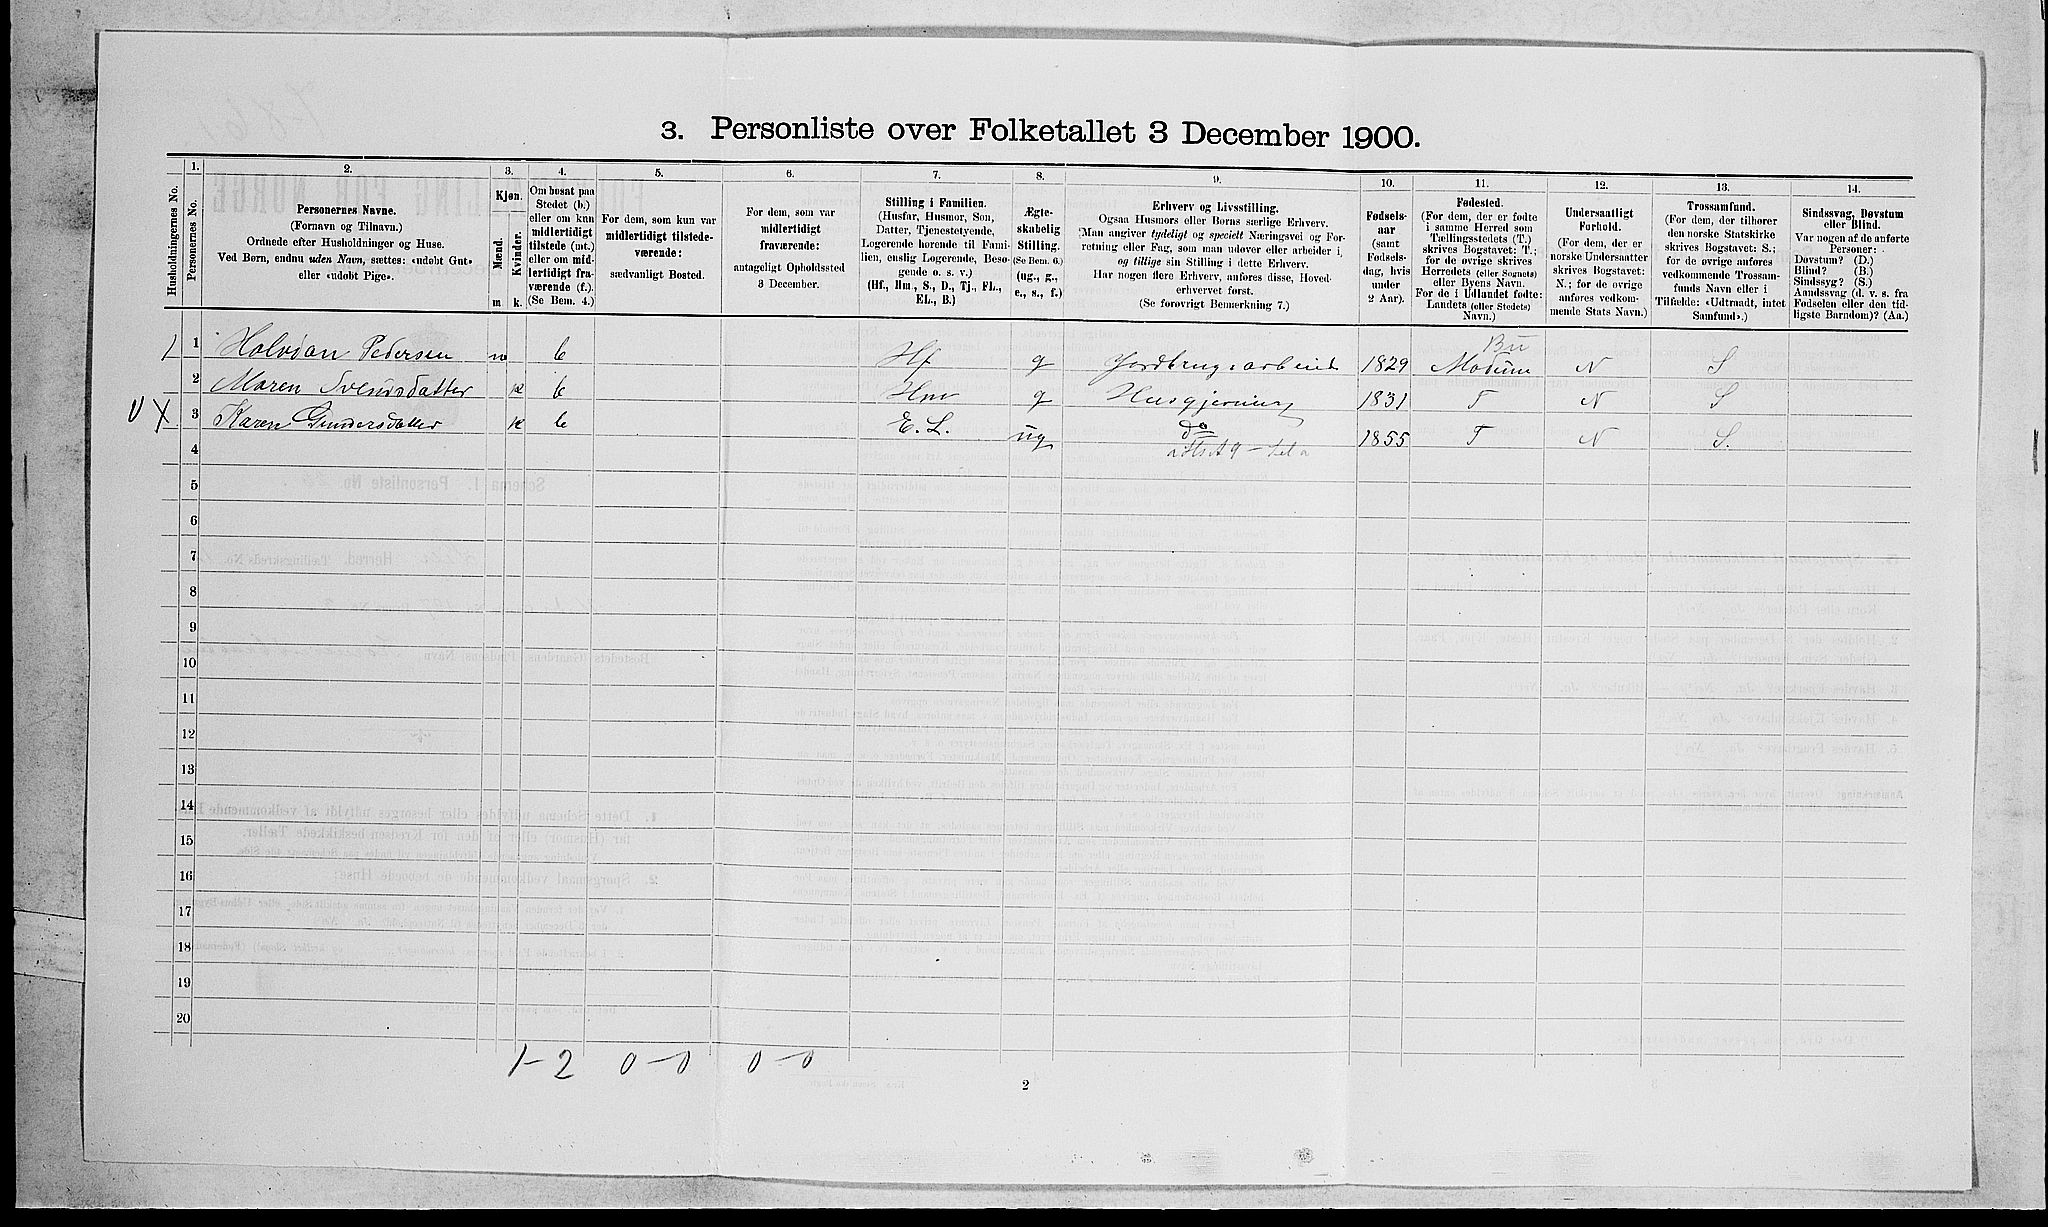 3. Personliste over Folketallet 3 December 1900.
1. 2. 3. 4. 5. 6. 7. 8. 9. 10. 11. 12. 13. 14.
Husholdningernes No.
Personernes No.
Personernes Navne.
(Fornavn og Tilnavn.)
Ordnede efter Husholdninger og Huse.
Ved Børn, endnu uden Navn, sættes: «udøbt Gut»
eller «udøbt Pige».
Kjøn.
Mænd.
Kvinder.
m k.
Om bosat paa
Stedet (b.)
eller om kun
midlertidigt
tilstede (mt.)
eller om mid-
lertidigt fra-
værende (f.).
(Se Bem. 4.)
For dem, som kun var
midlertidigt tilstede-
værende:
sædvanligt Bosted.
For dem, som var
midlertidigt
fraværende:
antageligt Opholdssted
3 December.
Stilling i Familien.
(Husfar, Husmor, Søn,
Datter, Tjenestetyende,
Logerende hørende til Fami-
lien, enslig Logerende, Besø-
gende o. s. v.)
(Hf., Hm., S., D., Tj., FL.,
EL., B.)
Ægte-
skabelig
Stilling.
(Se Bem. 6.)
(ug., g.,
e., s., f.)
Erhverv og Livsstilling.
Ogsaa Husmors eller Børns særlige Erhverv.
Man angiver tydeligt og specielt Næringsvei og For-
retning eller Fag, som man udøver eller arbeider i,
og tillige sin Stilling i dette Erhverv.
Har nogen flere Erhverv, anføres disse, Hoved-
erhvervet først.
(Se forøvrigt Bemerkning 7.)
Fødsels-
aar
(samt
Fødsels-
dag, hvis
under
2 Aar).
Fødested.
(For dem, der er fødte
i samme Herred som
Tællingsstedets (T.)
skrives Bogstavet: T.;
for de øvrige skrives
Herredets (eller Sognets)
eller Byens Navn.
For de i Udlandet fødte:
Landets (eller Stedets)
Navn.)
Undersaatligt
Forhold.
(For dem, der er
norske Undersaatter
skrives Bogstavet:
N.; for de øvrige
anføres vedkom-
mende Stats Navn.)
Trossamfund.
(For dem, der tilhører
den norske Statskirke
skrives Bogstavet: S.;
for de øvrige anføres
vedkommende Trossam-
funds Navn eller i
Tilfælde: «Udtraadt, intet
Samfund».)
Sindssvag, Døvstum
eller Blind.
Var nogen af de anførte
Personer:
Døvstum? (D.)
Blind? (B.)
Sindssyg? (S.)
Aandssvag (d. v. s. fra
Fødselen eller den tid-
ligste Barndom)? (Aa.)
Bu
1 Halvian Pedersen m b Hf g Jordbrugsarbeide 1829 Modum N S
2 Maren Svendsdatter k b Hm g Husgjerning 1831 T N S
V X 3 Karen Gundersdatter k b E. L. ug do 1855 T N S.
4
5
6
7
8
9
10
11
12
13
14
15
16
17
18
19
20
1-2 0-0 0-0
2